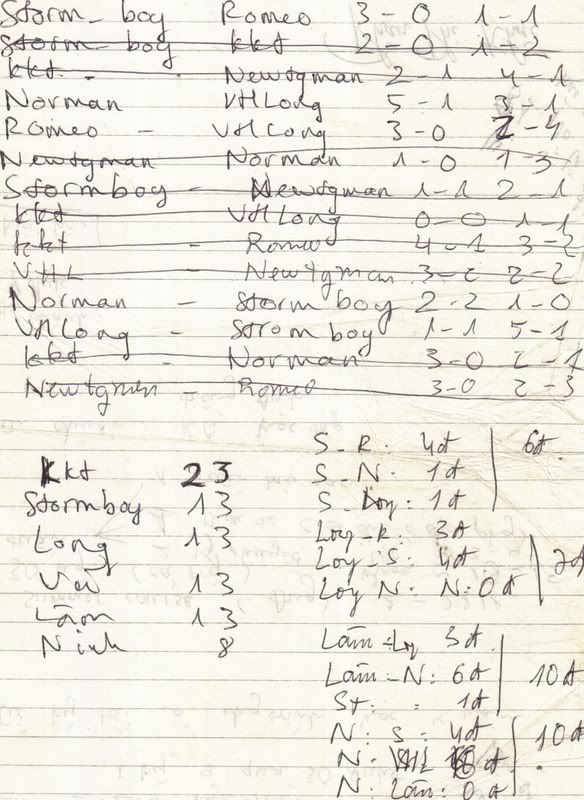 Storm_boy Romeo 3-0 1-1
Storm_boy kkt 2-0 1-2
kkt - Newtgman 2-1 4-1
Norman VHLong 5-1 3-1
Romeo - VHLong 3-0 2-4
Newtgman Norman 1-0 1-3
Stormboy - Newtgman 1-1 2-1
kkt VHLong 0-0 1-1
kkt - Romeo 4-1 3-2
VHL - Newtgman 3-2 2-2
Norman - Storm boy 2-2 1-0
VHLong - Strom boy 1-1 5-1
kkt - Norman 3-0 2-1
Newtgman - Romeo 3-0 2-3
Kkt 23
Stormboy 13
Long 13
Vũ 13
Lâm 13
Ninh 8
S_R: 4đ
S_N: 1đ
S_ : 1đ
6đ
Long_R: 3đ
Long_S: 4đ
Long N: N: 0đ
7đ
Lâm - Long 3đ
Lâm_N: 6đ
St: : 1đ
10đ
N: S: 4đ
N: VHL 6đ
N: Lâm: 0đ
10đ